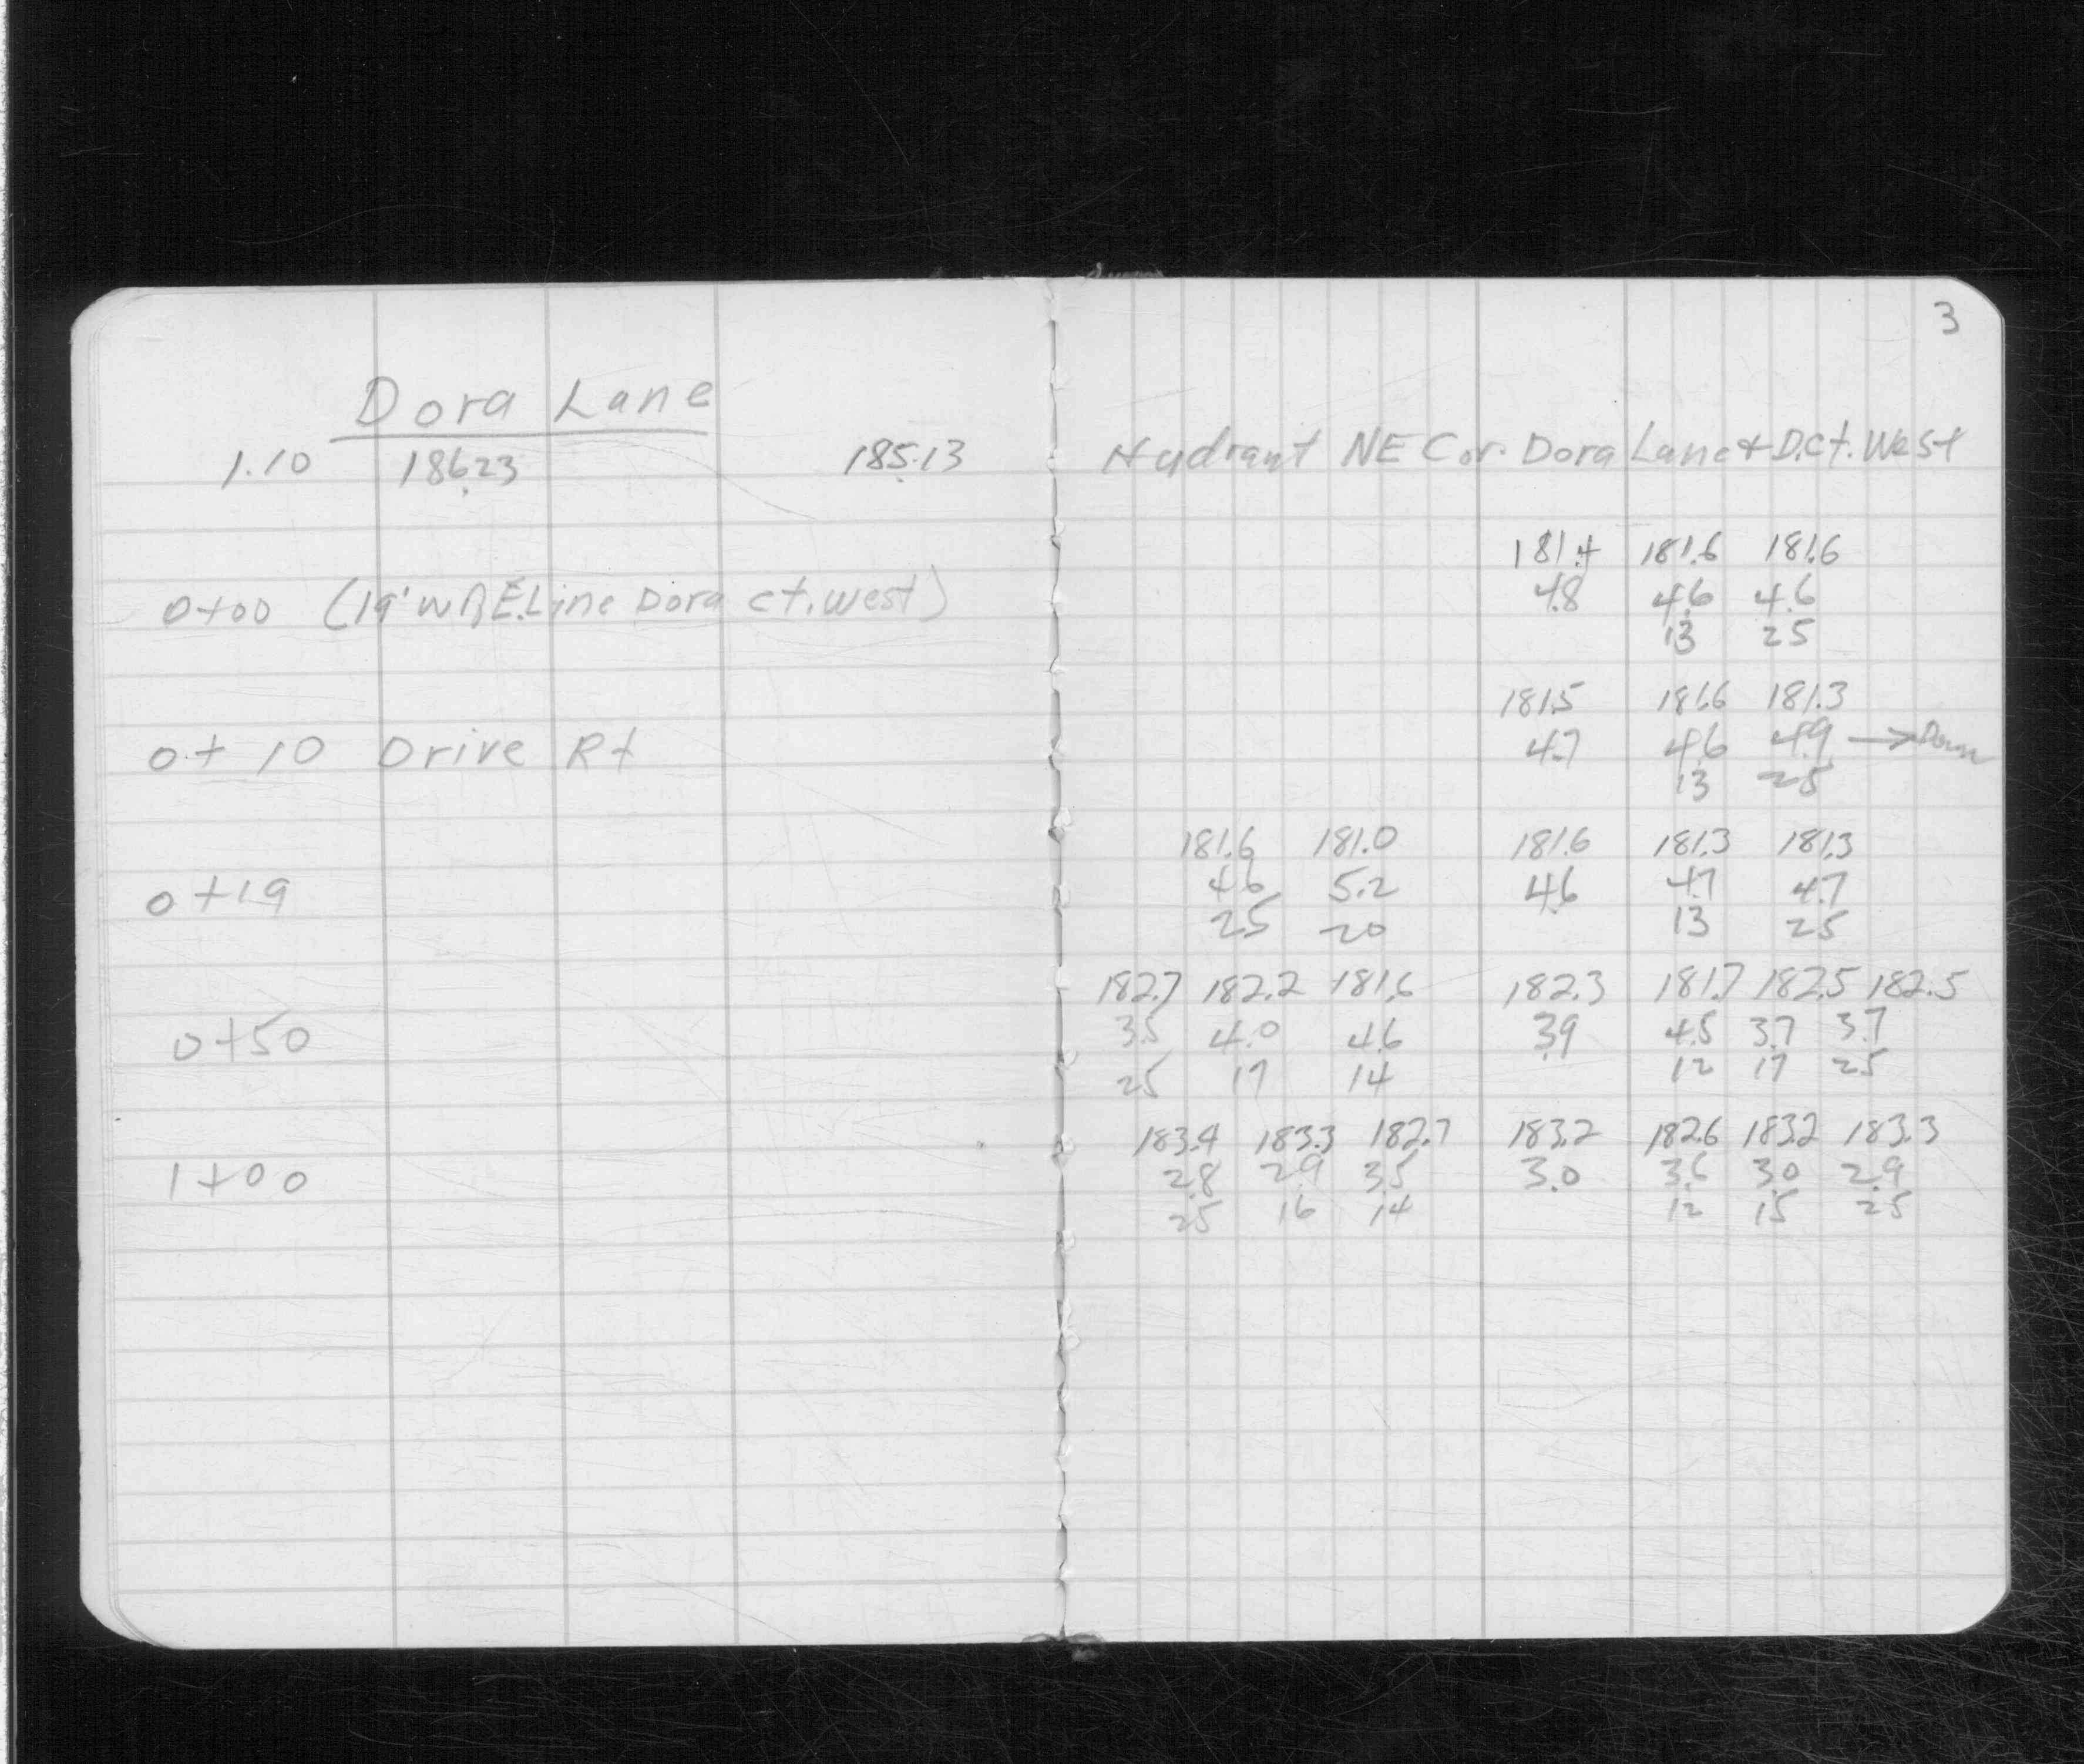 3
Dora Lane
1.10 186.23 185.13 Hydrant NE Cor. Dora Lane + D.Ct. West
181.4 181.6 181.6
0+00 (19' W E.Line Dora ct. West) 4.8 4.6 4.6
13 25
181.5 181.6 181.3
0+10 Drive Rt 4.7 4.6 4.9 → Down
13 25
181.6 181.0 181.6 181.3 181.3
0+19 4.6 5.2 4.6 4.7 4.7
25 20 13 25
182.7 182.2 181.6 182.3 181.7 182.5 182.5
0+50 3.5 4.0 4.6 3.9 4.5 3.7 3.7
25 17 14 12 17 25
183.4 183.3 182.7 183.2 182.6 183.2 183.3
1+00 2.8 2.9 3.5 3.0 3.6 3.0 2.9
25 16 14 12 15 25